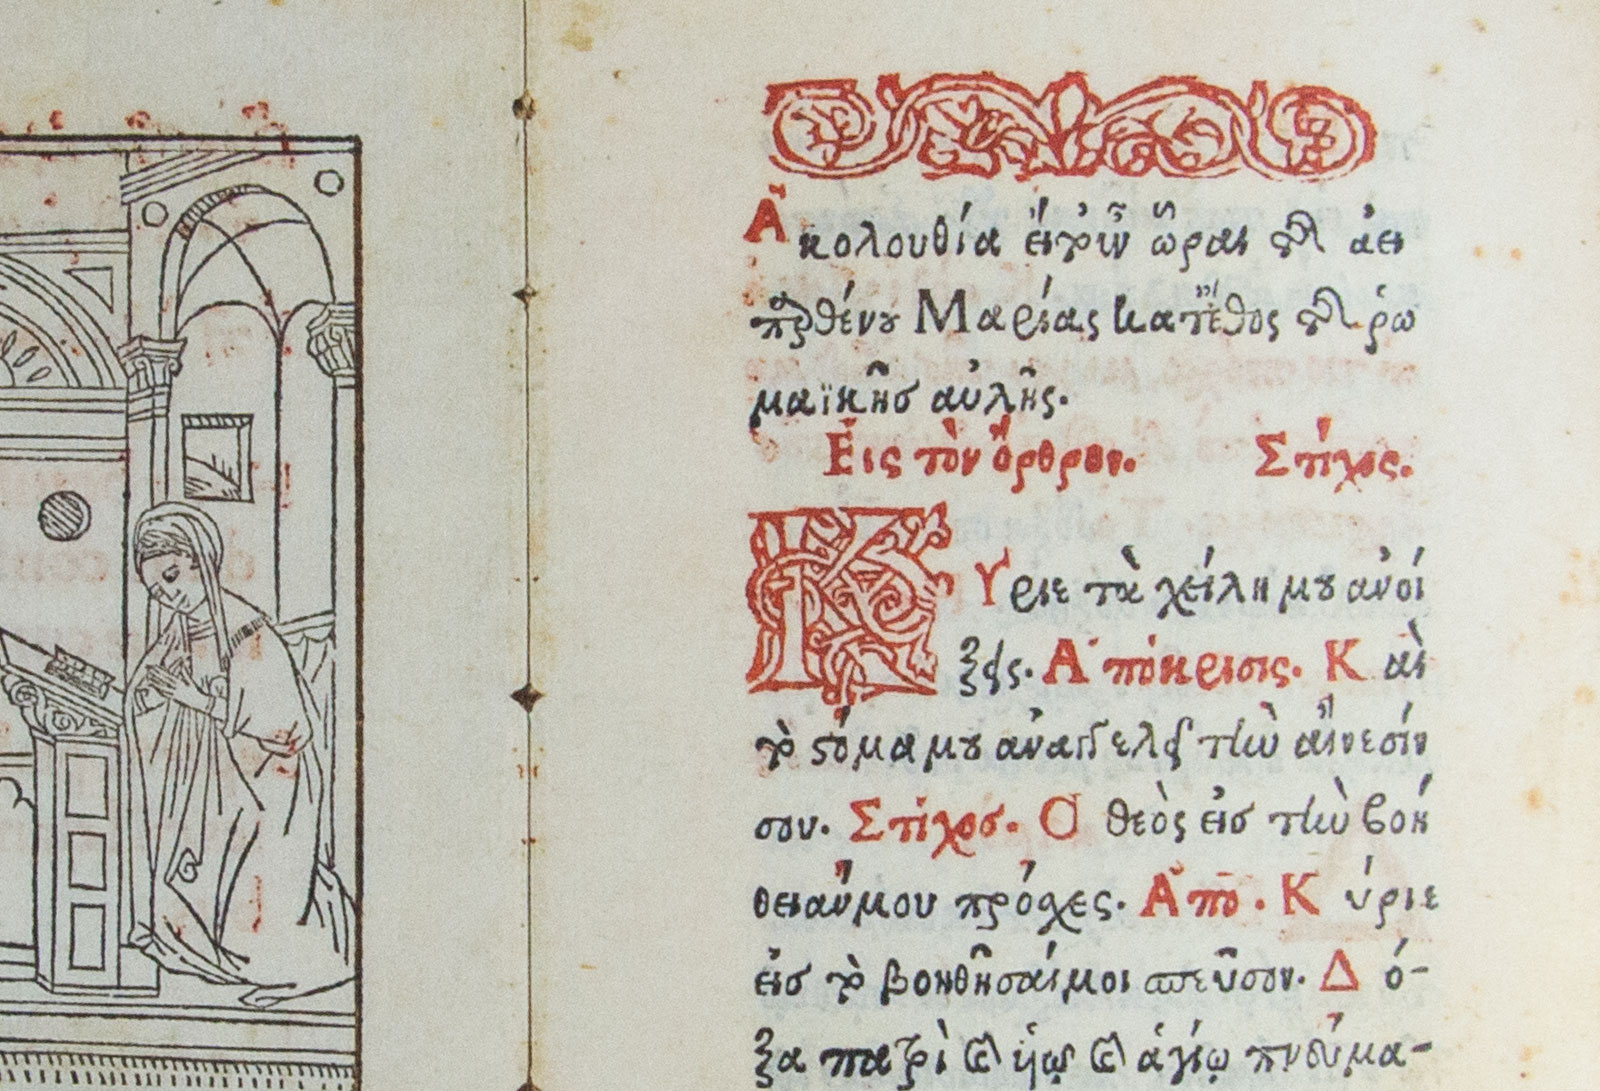 Ἀκολουθία εἰς τὰς ὥρας τῆς ἀει
παρθένου Μαρίας κατ' ἔθος τῆς ῥω
μαϊκῆσ αὐλῆς.
Εἰς τὸν ὄρθρον. Στίχος.
ΚΥριε τὰ χείλη μου ἀνοί
ξεις. Ἀπόκρισις. Καὶ
τὸ στόμα μου ἀναγγελεῖ τὴν αἴνεσίν
σου. Στίχοσ. Ὁ θεὸς εἰσ τὴν βοή
θειάν μου πρόσχες. Ἀπό. Κύριε
εἰσ τὸ βοηθῆσαί μοι σπεῦσον. Δό-
ξα πατρὶ καὶ ὑιῷ καὶ ἁγίῳ πνεύμα-